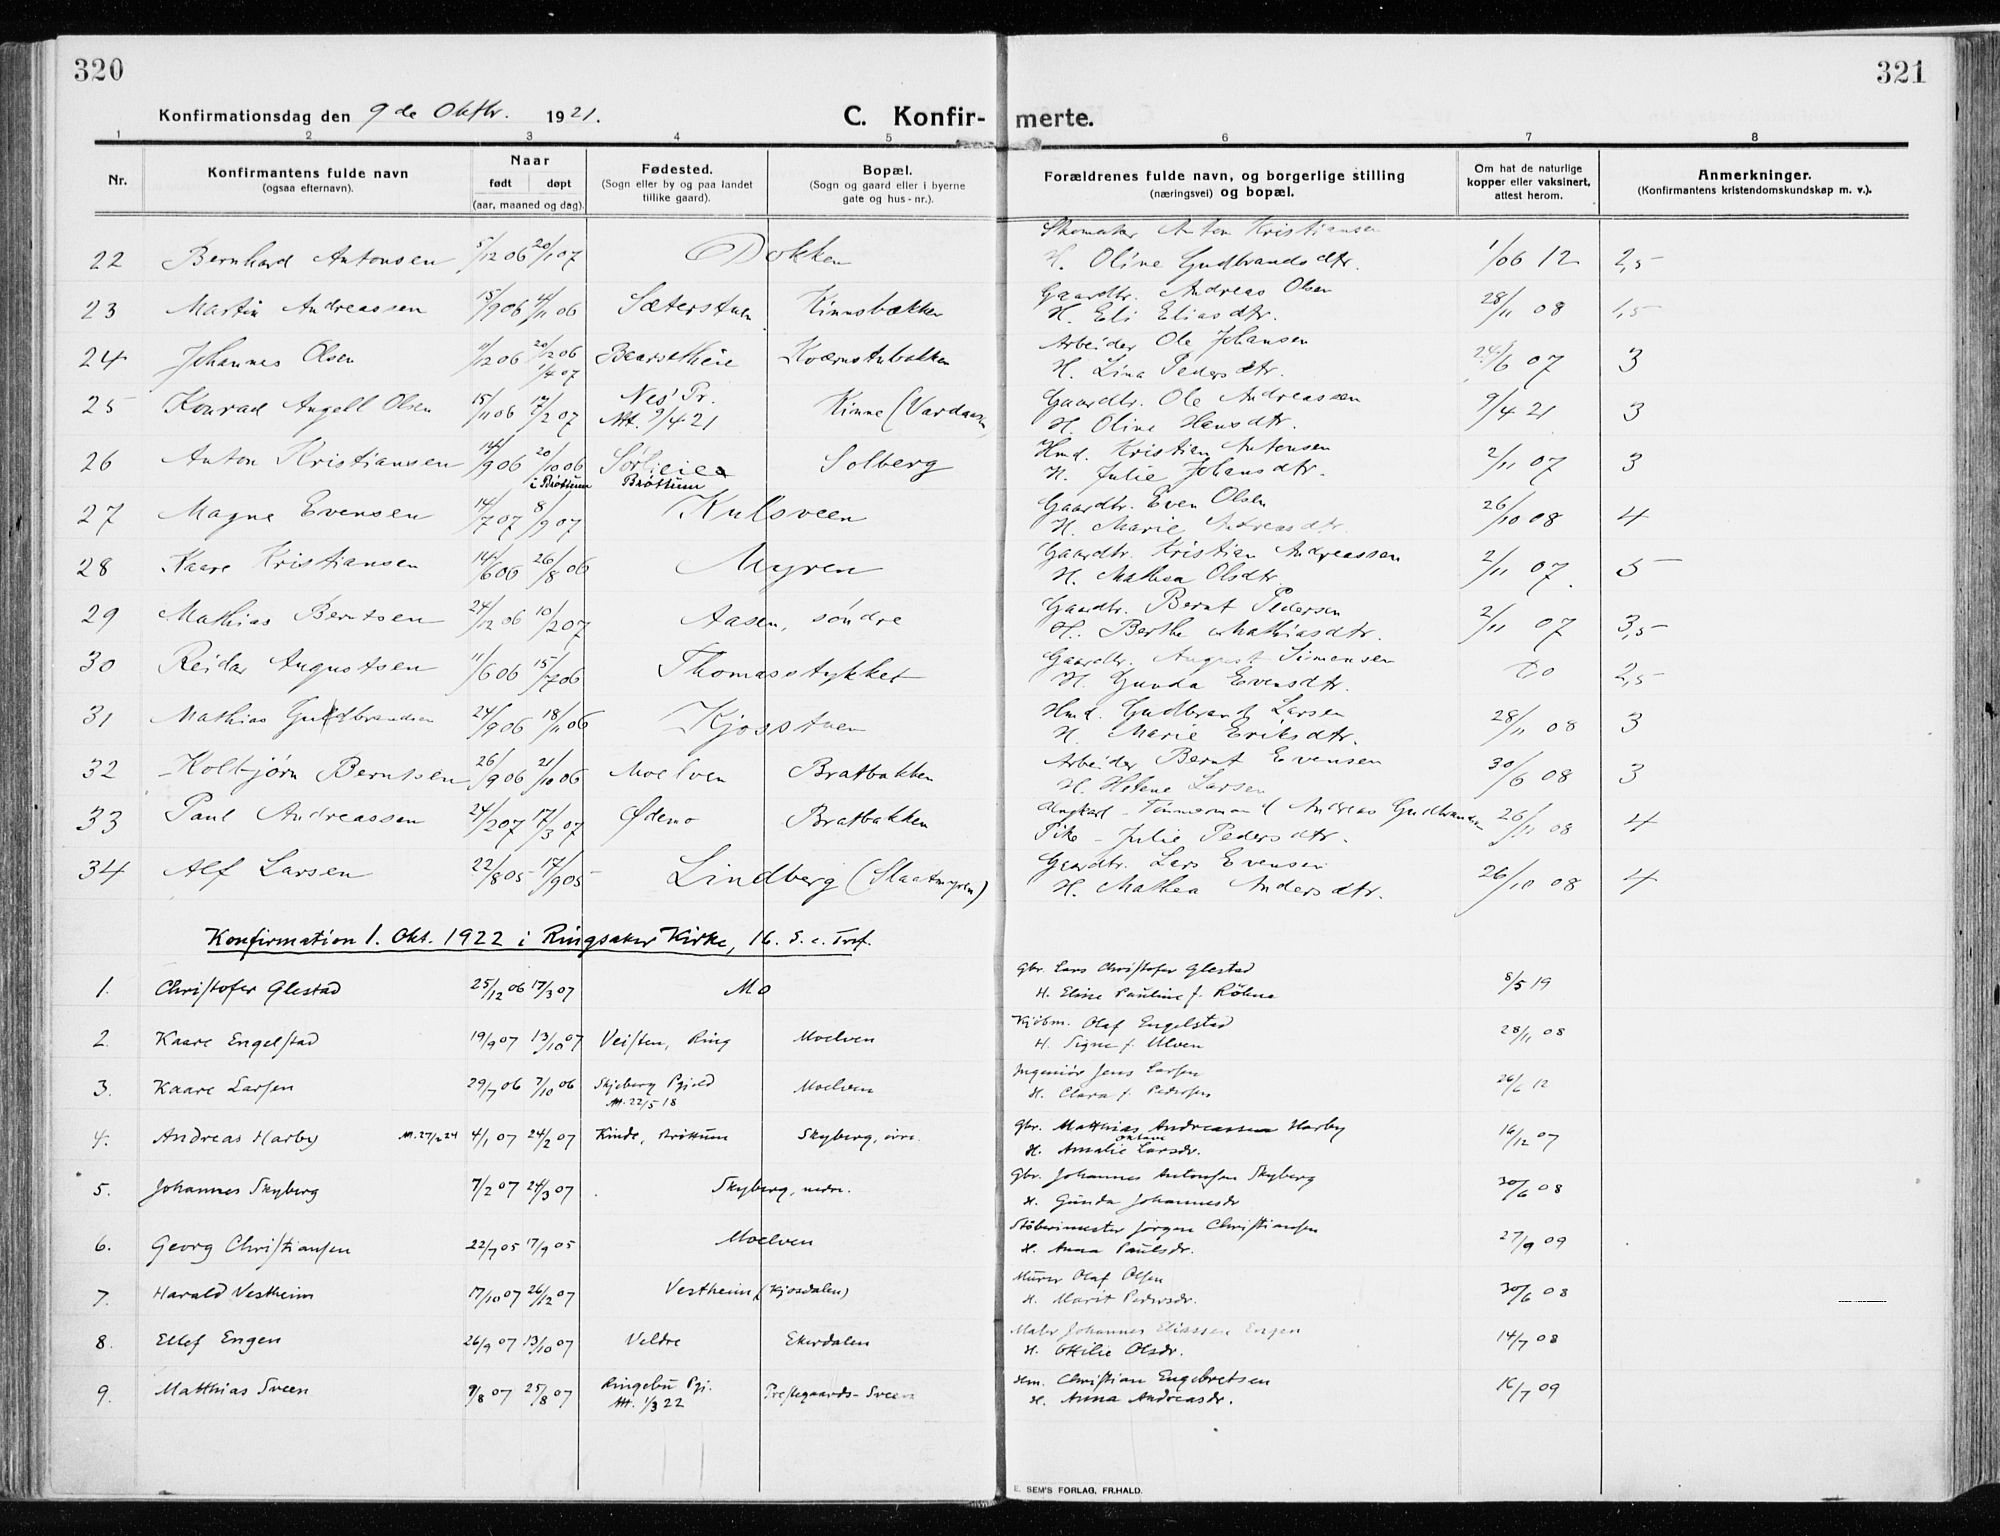 320
321
Konfirmationsdag den 9 de Oktbr. 1921.
C. Konfir- merte.
1 2 3 4 5 6 7 8
Nr.
Konfirmantens fulde navn
(ogsaa efternavn).
Naar
født døpt
(aar, maaned og dag).
Fødested.
(Sogn eller by og paa landet
tillike gaard).
Bopæl.
(Sogn og gaard eller i byerne
gate og hus-nr.).
Forældrenes fulde navn, og borgerlige stilling
(næringsvei) og bopæl.
Om hat de naturlige
kopper eller vaksinert,
attest herom.
Anmerkninger.
(Konfirmantens kristendomskundskap m. v.).
Skomaker Anton Kristiansen
22 Bernhard Antonsen 5/12 06 20/1 07 Dokken H. Oline Gudbrandsdtr. 1/06 12 2,5
Gaardbr. Andreas Olsen
23 Martin Andreassen 15/9 06 4/11 06 Sæterstuen Kinnsbækken H. Eli Eliasdtr. 28/11 08 1,5
Arbeider Ole Johansen
24 Johannes Olsen 11/12 06 20/12 06 1/4 07 Kværnstubakken H. Lina Pedersdtr. 24/6 07 3
Gaardbr. Ole Andreassen
25 Konrad Angell Olsen 15/11 06 17/2 07 Nes' Pr. Att. 9/4 21 Kinne H. Oline Hansdtr. 9/4 21 3
Hmd. Kristian Antonsen
26 Anton Kristiansen 14/9 06 20/10 06 i Brøttum Sørlieie Brøttum Solberg H. Julie Johansdtr. 2/11 07 3
Gaardbr. Even Olsen
27 Magne Evensen 14/7 07 8/9 07 Kulsveen H. Marie Andreasdtr. 26/10 08 4
Gaardbr. Kristian Andreassen
28 Kaare Kristiansen 14/6 06 26/8 06 Myren H. Mathea Olsdtr. 2/11 07. 5
Gaardbr. Bernt Pedersen
29 Mathias Berntsen 24/12 06 10/2 07 Aasen, søndre H. Berthe Mathiasdtr. 2/11 07 3,5
Gaardbr. August Simensen
30 Reidar Augustsen 11/6 06 15/7 06 Thomasstykket H. Gunda Evensdtr. Do 2,5
Hmd. Gudbrand Larsen
31 Mathias Gudbrandsen 24/9 06 18/11 06 Kjosstuen H. Marie Eriksdtr. 28/11 08 3
Arbeider Bernt Evensen
32 Kolbjørn Berntsen 26/9 06 21/10 06 Moelven Bratbakken H. Helene Larsen 30/6 08 3
Ungkarl - Tømmermand Andreas Gudbrandsen
33 Paul Andreassen 24/2 07 17/3 07 Ødemo Bratbakken Pike - Julie Pedersdtr. 26/11 08 4
Gaardbr. Lars Evensen
34 Alf Larsen 22/8 05 17/9 05 Lindberg (Slaatmyren) H. Mathea Andersdtr. 26/10 08 4
Konfirmation 1. Okt. 1922 i Ringsaker Kirke, 16. S. e. Tref.
Gbr. Lars Christofer Glestad
1. Christofer Glestad 25/12 06 17/3 07 Mo H. Elise Pauline f. Röhne 8/5 19
Kjöbm. Olaf Engelstad
2. Kaare Engelstad 19/9 07 13/10 07 Veisten, Ring Moelven H. Signe f. Ulven 28/11 08
Ingeniör Jens Larsen
3. Kaare Larsen 29/7 06 7/10 06 Skjeberg Pgjeld Att. 22/5 18 Moelven H. Clara f. Pedersen 26/6 12
Gbr. Matthias Andreassen Harby
4. Andreas Harby M. 27/2 24 4/1 07 24/2 07 Kinde, Bröttum Skyberg, övre. H. Amalie Oktave Larsdr. 16/12 07
Gbr. Johannes Antonsen Skyberg
5. Johannes Skyberg 7/2 07 24/3 07 Skyberg, nedre. H. Gunda Johannesdr 30/6 08
Stöberimester Jörgen Christiansen
6. Georg Christiansen 22/7 05 17/9 05 Moelven H. Anna Paulsdr. 27/9 09
Murer Olaf Olsen
7. Harald Vestheim 17/10 07 26/12 07 Vestheim (Kjosdalen) H. Marit Pedersdr. 30/6 08
Maler Johannes Eliassen Engen
8. Ellef Engen 26/9 07 13/10 07 Veldre Ekerdalen H. Otilie Olsdr. 14/7 08
Hm. Christian Engebretsen
9. Matthias Sveen 9/8 07 25/8 07 Ringebu Pgj. Att. 1/3 22 Prestegaards-Sveen H. Anna Andreasdr. 16/7 09
E. SEM'S FORLAG, FR.HALD.